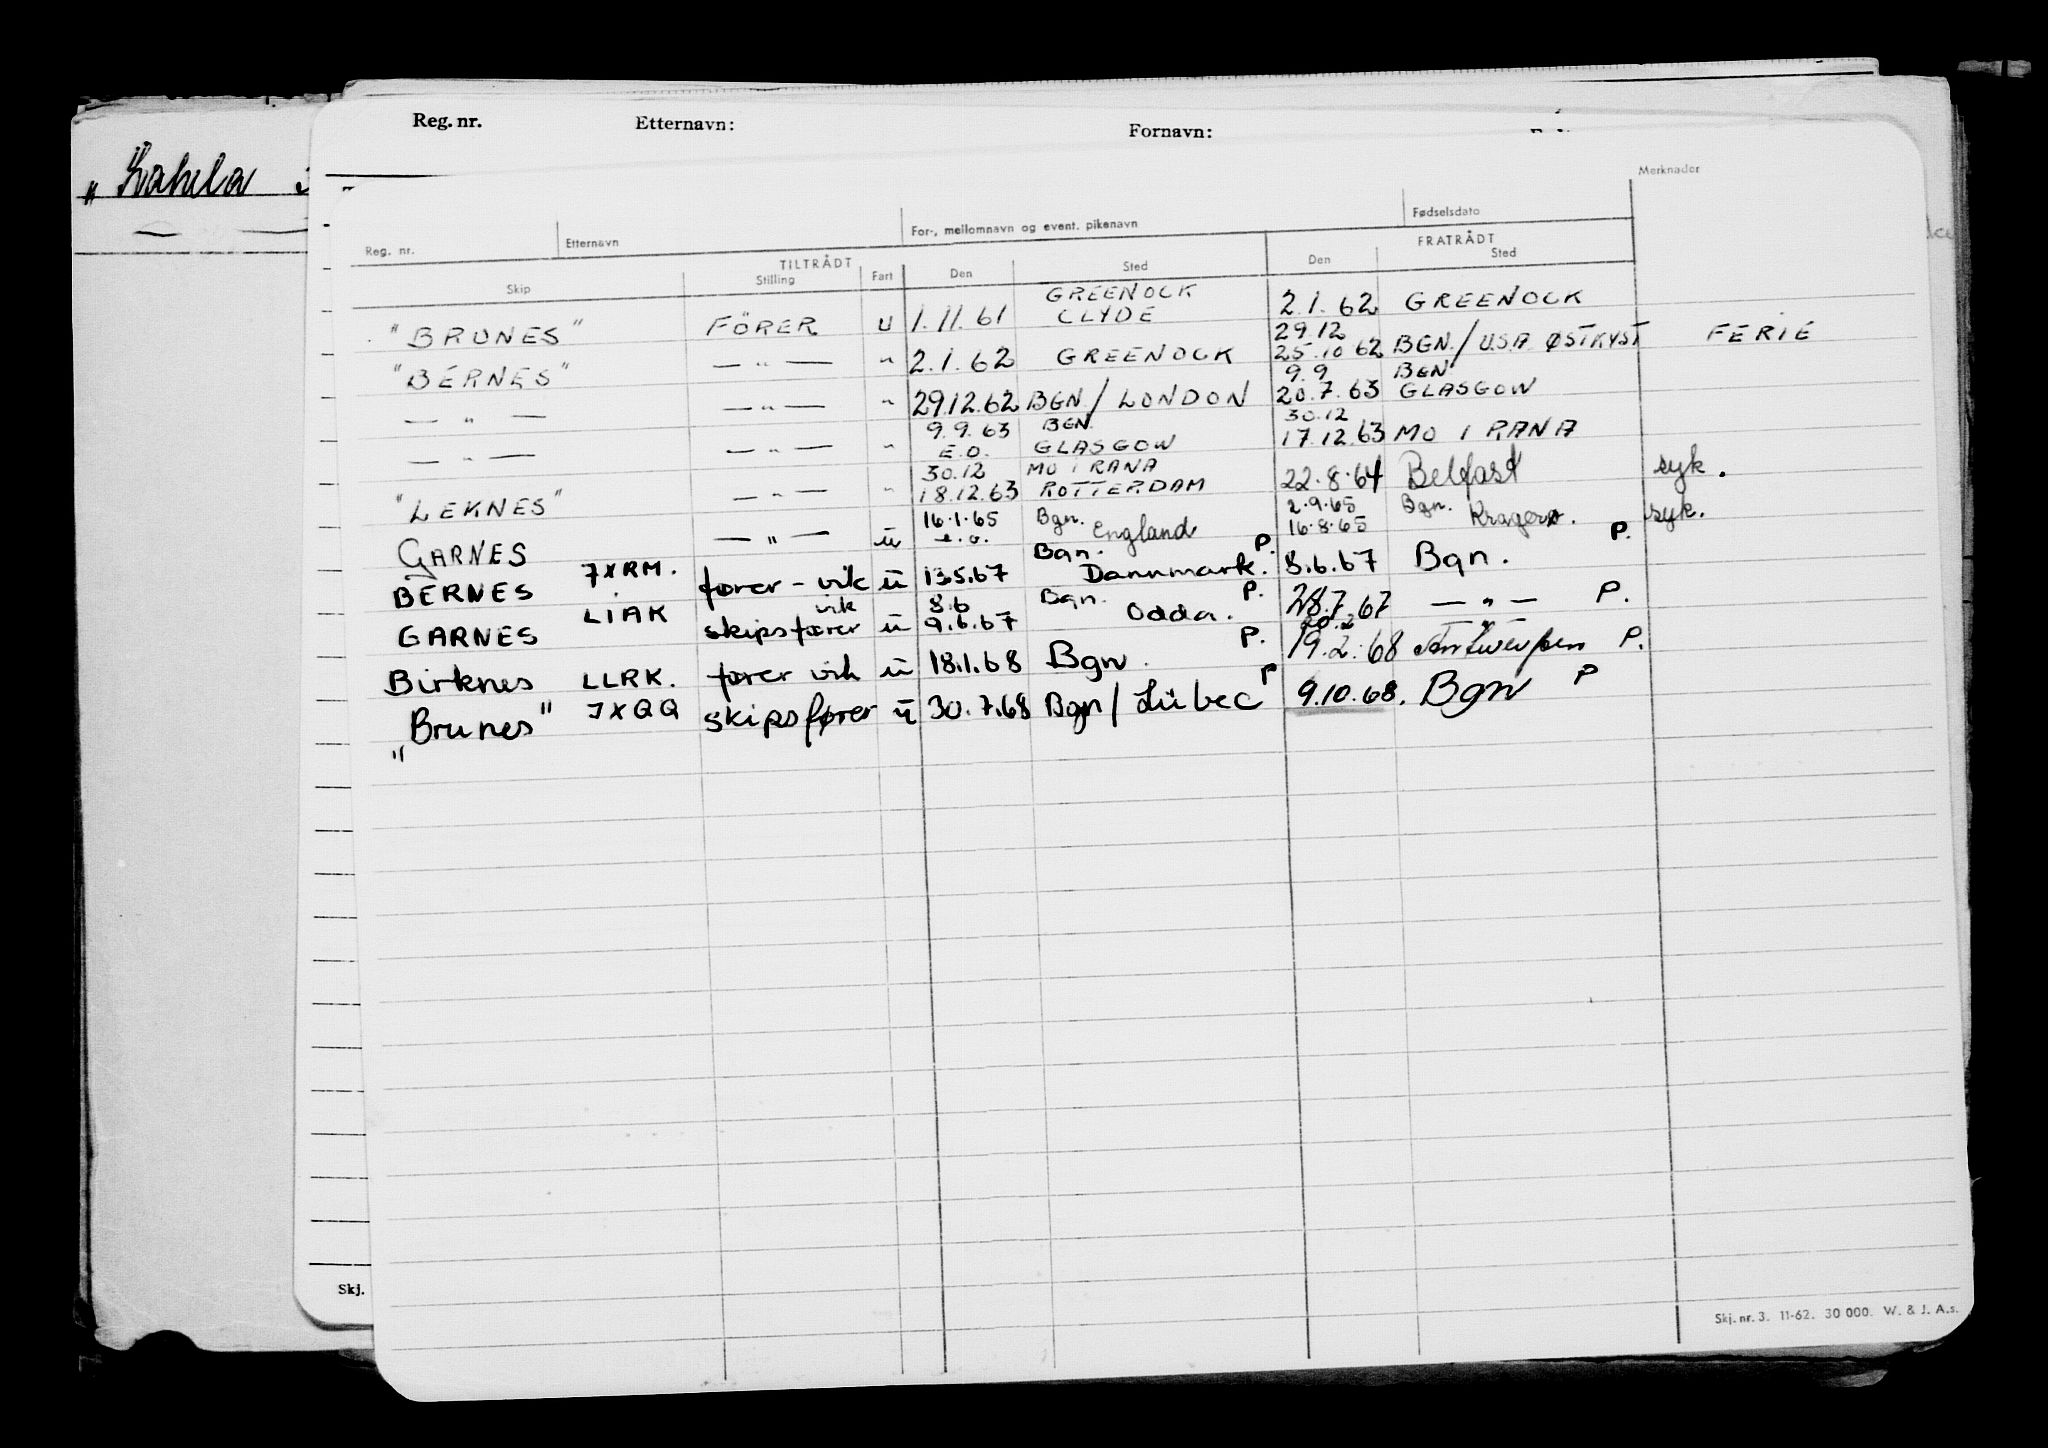 Reg. nr. Etternavn: Fornavn:
Merknader
Reg. nr. Etternavn For-, mellomnavn og event. pikenavn Fødselsdato
TILTRÅDT FRATRÅDT
Skip Stilling Fart Den Sted Den Sted
GREENOCK
"BRUNES" FÖRER U 1.11.61 CLYDE 2.1.62 GREENOCK
29.12
"BERNES" — " — " 2.1.62 GREENOCK 25.10 62 BGN/USA ØSTKYST FERIE
9.9 BGN
— " — — " — " 29.12.62 BGN/LONDON 20.7.63 GLASGOW
9.9.63 BGN. 30.12
— " — — " — " E.O. GLASGOW 17.12.63 MO I RANA
30.12 MO I RANA
"LEKNES" — " — " 18.12.63 ROTTERDAM 22.8.64 Belfast syk.
16.1.65 Bgn. 2.9.65 Bgn.
GARNES — " — u e.o. England 16.8.65 Kragerø. syk.
Bgn. P. P.
BERNES JXRM. fører - vik u 13.5.67 Dannmark. 8.6.67 Bgn.
vik 8.6 Bgn. P.
GARNES LIAK skipsfører u 9.6.67 Odda. 28.7.67 — " — P.
20.2 "
Birknes LLRK. fører vik u 18.1.68 Bgn. P. 19.2.68 Antwerpen P.
"Brunes" JXQQ skipsfører u 30.7.68 Bgn/Lübec P 9.10.68. Bgn P
Skj.
Skj. nr. 3. 11-62. 30 000. W. & J. A.s.